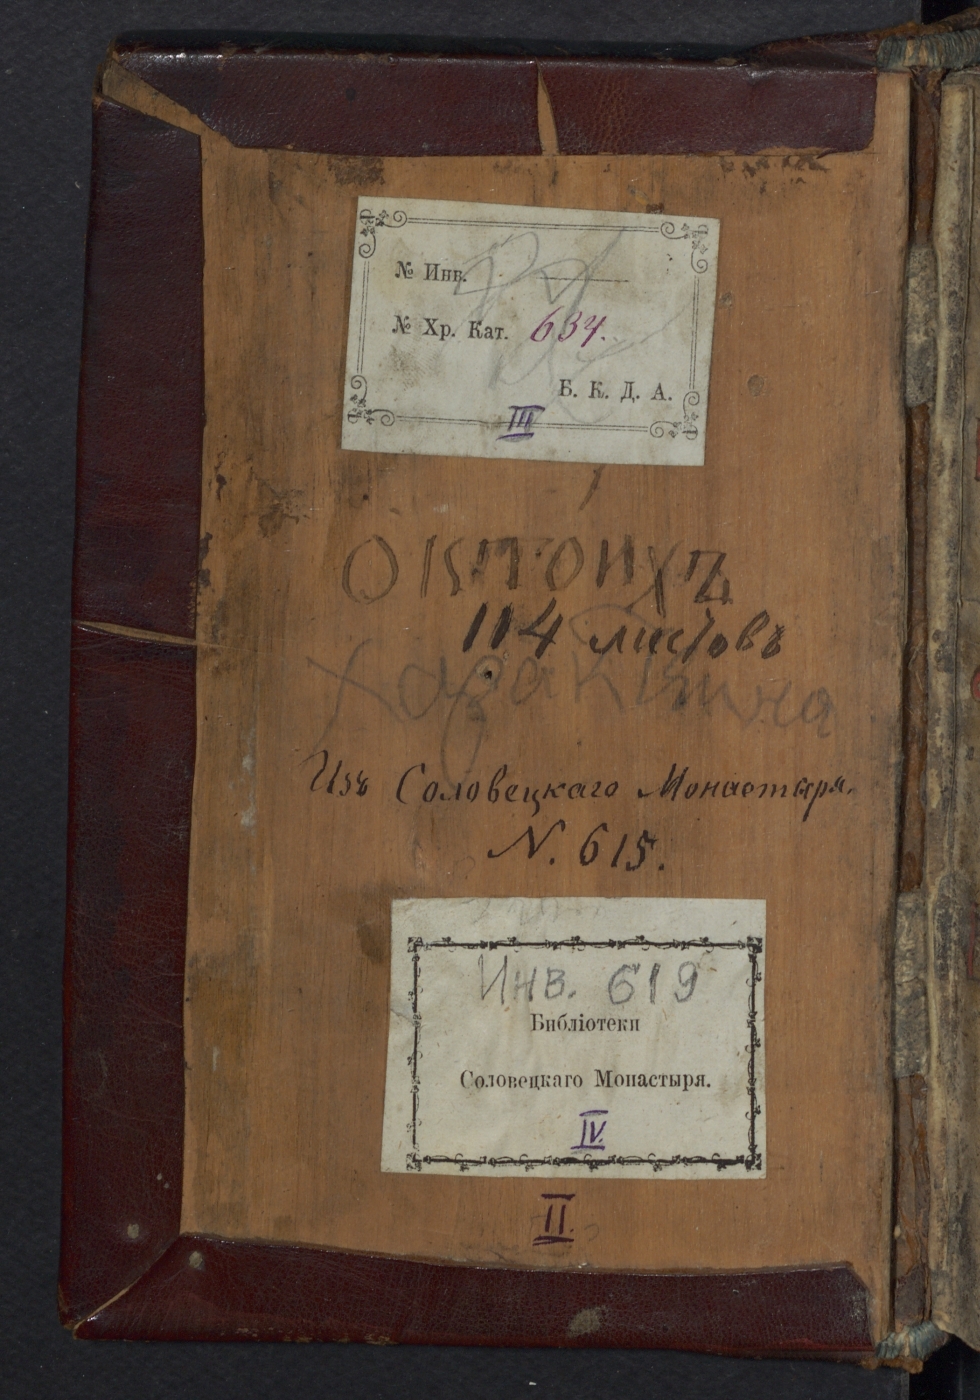 № Инв.
№ Хр. Кат. 634.
Б. К. Д. А.
III
ОКТОИХЪ
114 листовъ
Изъ Соловецкаго Монастыря.
N. 615.
Инв. 619
Библіотеки
Соловецкаго Монастыря.
IV.
II.